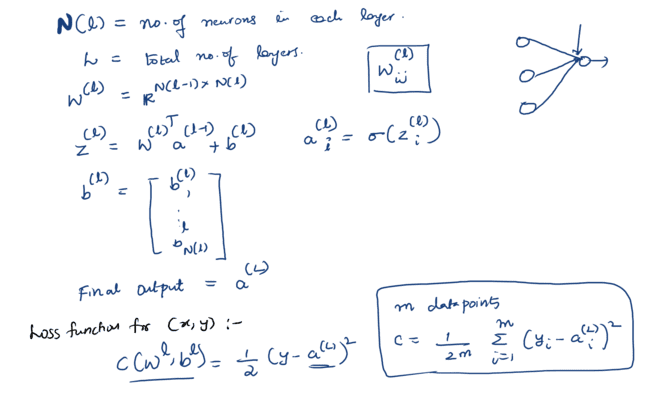 N(l) = no. of neurons in each layer.
L = total no. of layers.
W^(l) = ℝ^N(l-1)×N(l)
W_ij^(l)
z^(l) = W^(l)^T a^(l-1) + b^(l)
a_i^(l) = σ(z_i^(l))
b^(l) = [ b_1^(l) ⋮ b_N(l)^l ]
Final output = a^(L)
Loss function for (x, y) :-
C(W^l, b^l) = 1/2 (y - a^(L))^2
m data points
C = 1/2m Σ_{i=1}^m (y_i - a_i^(L))^2